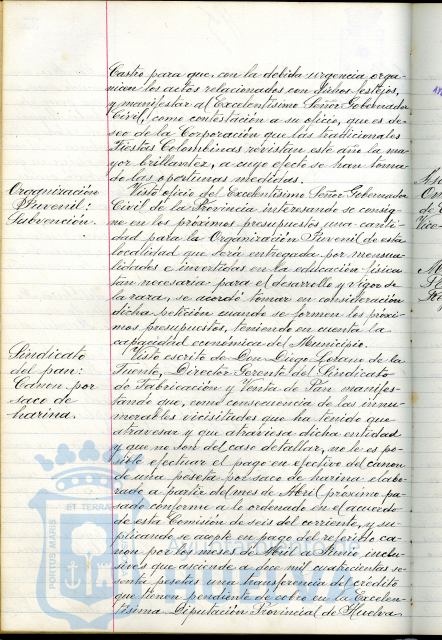 Castro para que, con la debida urgencia, orga-
nicen los actos relacionados con dichos festejos,
y manifestar al Excelentísimo Señor Gobernador
Civil, como contestación a su oficio, que es de-
seo de la Corporación que las tradicionales
Fiestas Colombinas revistan este año la ma-
yor brillantez, a cuyo efecto se han toma-
do las oportunas medidas.
Organización
Juvenil:
Subvención.
Visto oficio del Excelentísimo Señor Gobernador
Civil de la Provincia interesando se consig-
ne en los próximos presupuestos una canti-
dad para la Organización Juvenil de esta
localidad que será entregada por mensua-
lidades e invertidas en la educación física
tan necesaria para el desarrollo y vigor de
la raza, se acordó tomar en consideración
dicha petición cuando se formen los próxi-
mos presupuestos, teniendo en cuenta la
capacidad económica del Municipio.
Sindicato
del pan:
Canon por
saco de
harina.
Visto escrito de Don Diego Lozano de la
Fuente, Director Gerente del Sindicato
de Fabricación y Venta de Pan manifes-
tando que, como consecuencia de las innu-
merables vicisitudes que ha tenido que
atravesar y que atraviesa dicha entidad
y que no son del caso detallar, no le es po-
sible efectuar el pago en efectivo del canon
de una peseta por saco de harina elabo-
rado a partir del mes de Abril próximo pa-
sado conforme a lo ordenado en el acuerdo
de esta Comisión de seis del corriente, y su-
plicando se acepte en pago del referido ca-
non por los meses de Abril a Junio inclu-
sives que asciende a doce mil cuatrocientas se-
senta pesetas una transferencia del crédito
que tienen pendiente de cobro en la Excelen-
tísima Diputación Provincial de Huelva
PORTUS MARIS
ET TERRA